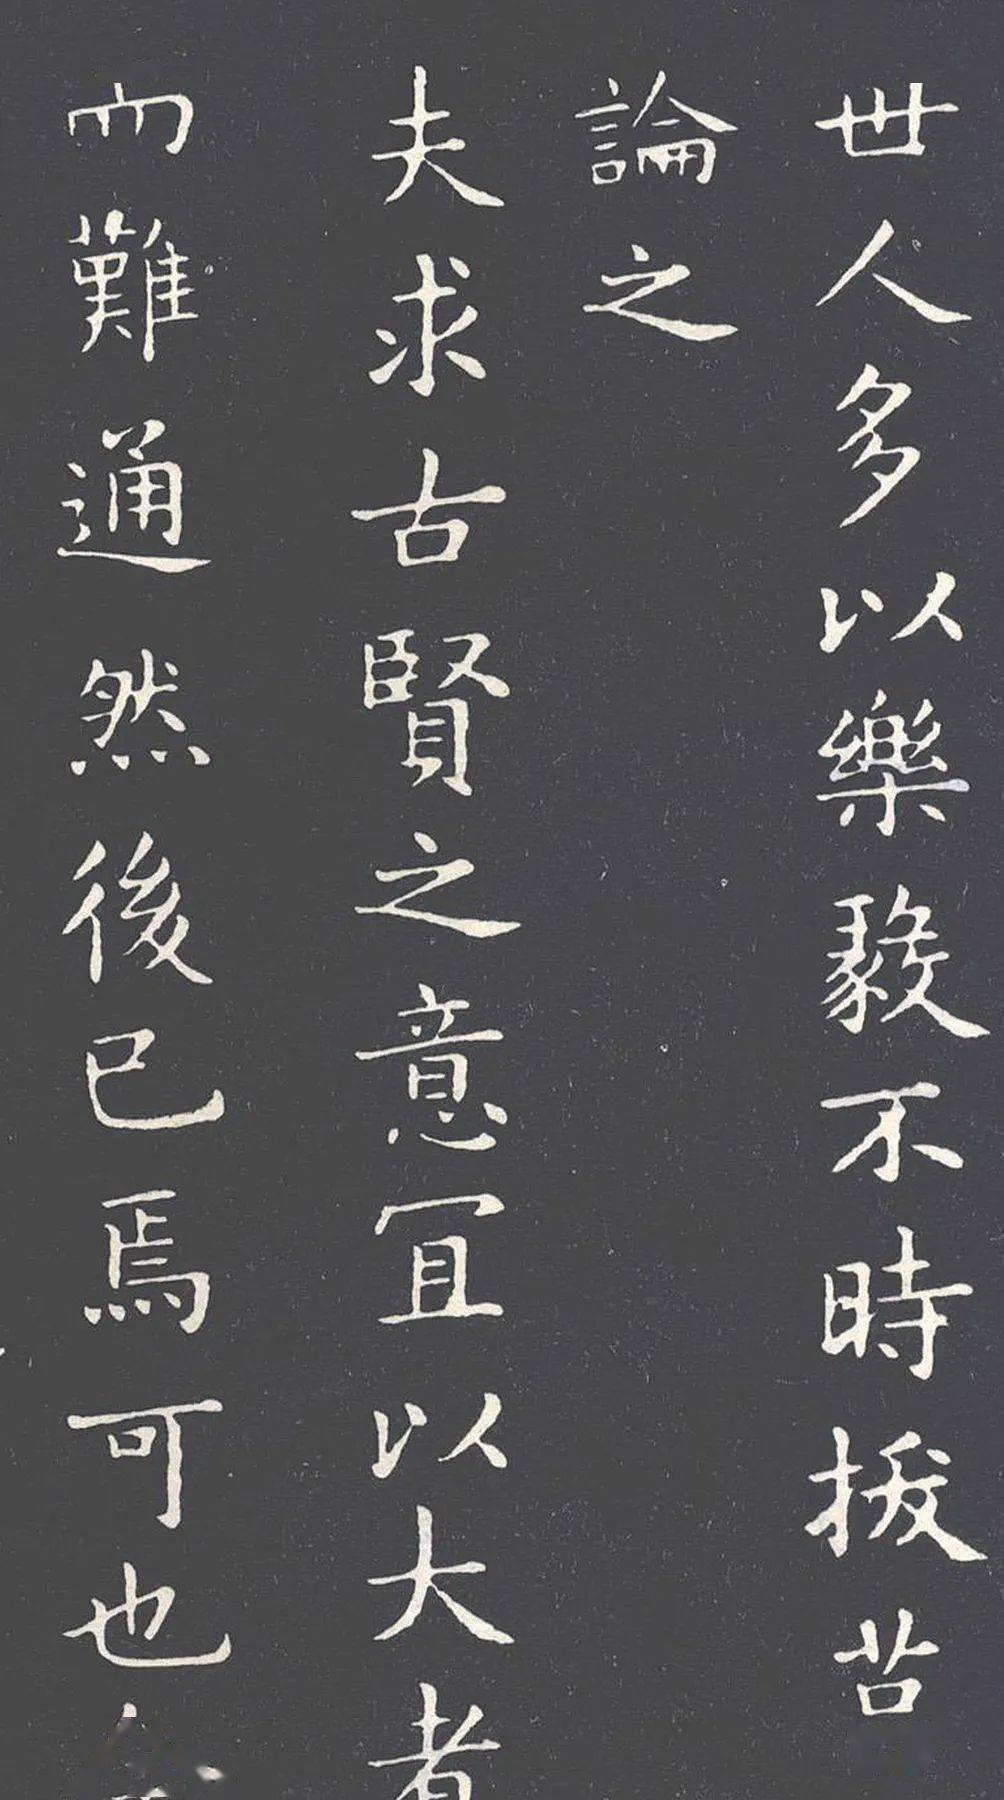 世人多以樂毅不時拔莒
論之
夫求古賢之意宜以大者
而難通然後已焉可也